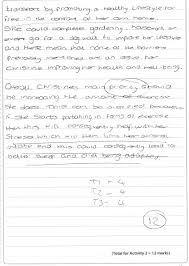 transport by promoting a healthy lifestyle for
free in the comfort of her own home.
She could complete gardening, housework or
errands
go for a dog walk to improve her lifestyle
and these mean that none of the barriers
previously mentioned are an issue for
Christine improving her health and well being.
Overall, Christines main priority should
be increasing the amount of exercise
she does. This can be
if she starts partaking in forms of exercise
then this will consequently help with her
stress which will then
her mental
state and this could consequently lead to
better sleep and
T1 - 4
T2 - 4
T3 - 4
12
(Total for Activity 2 = 12 marks)